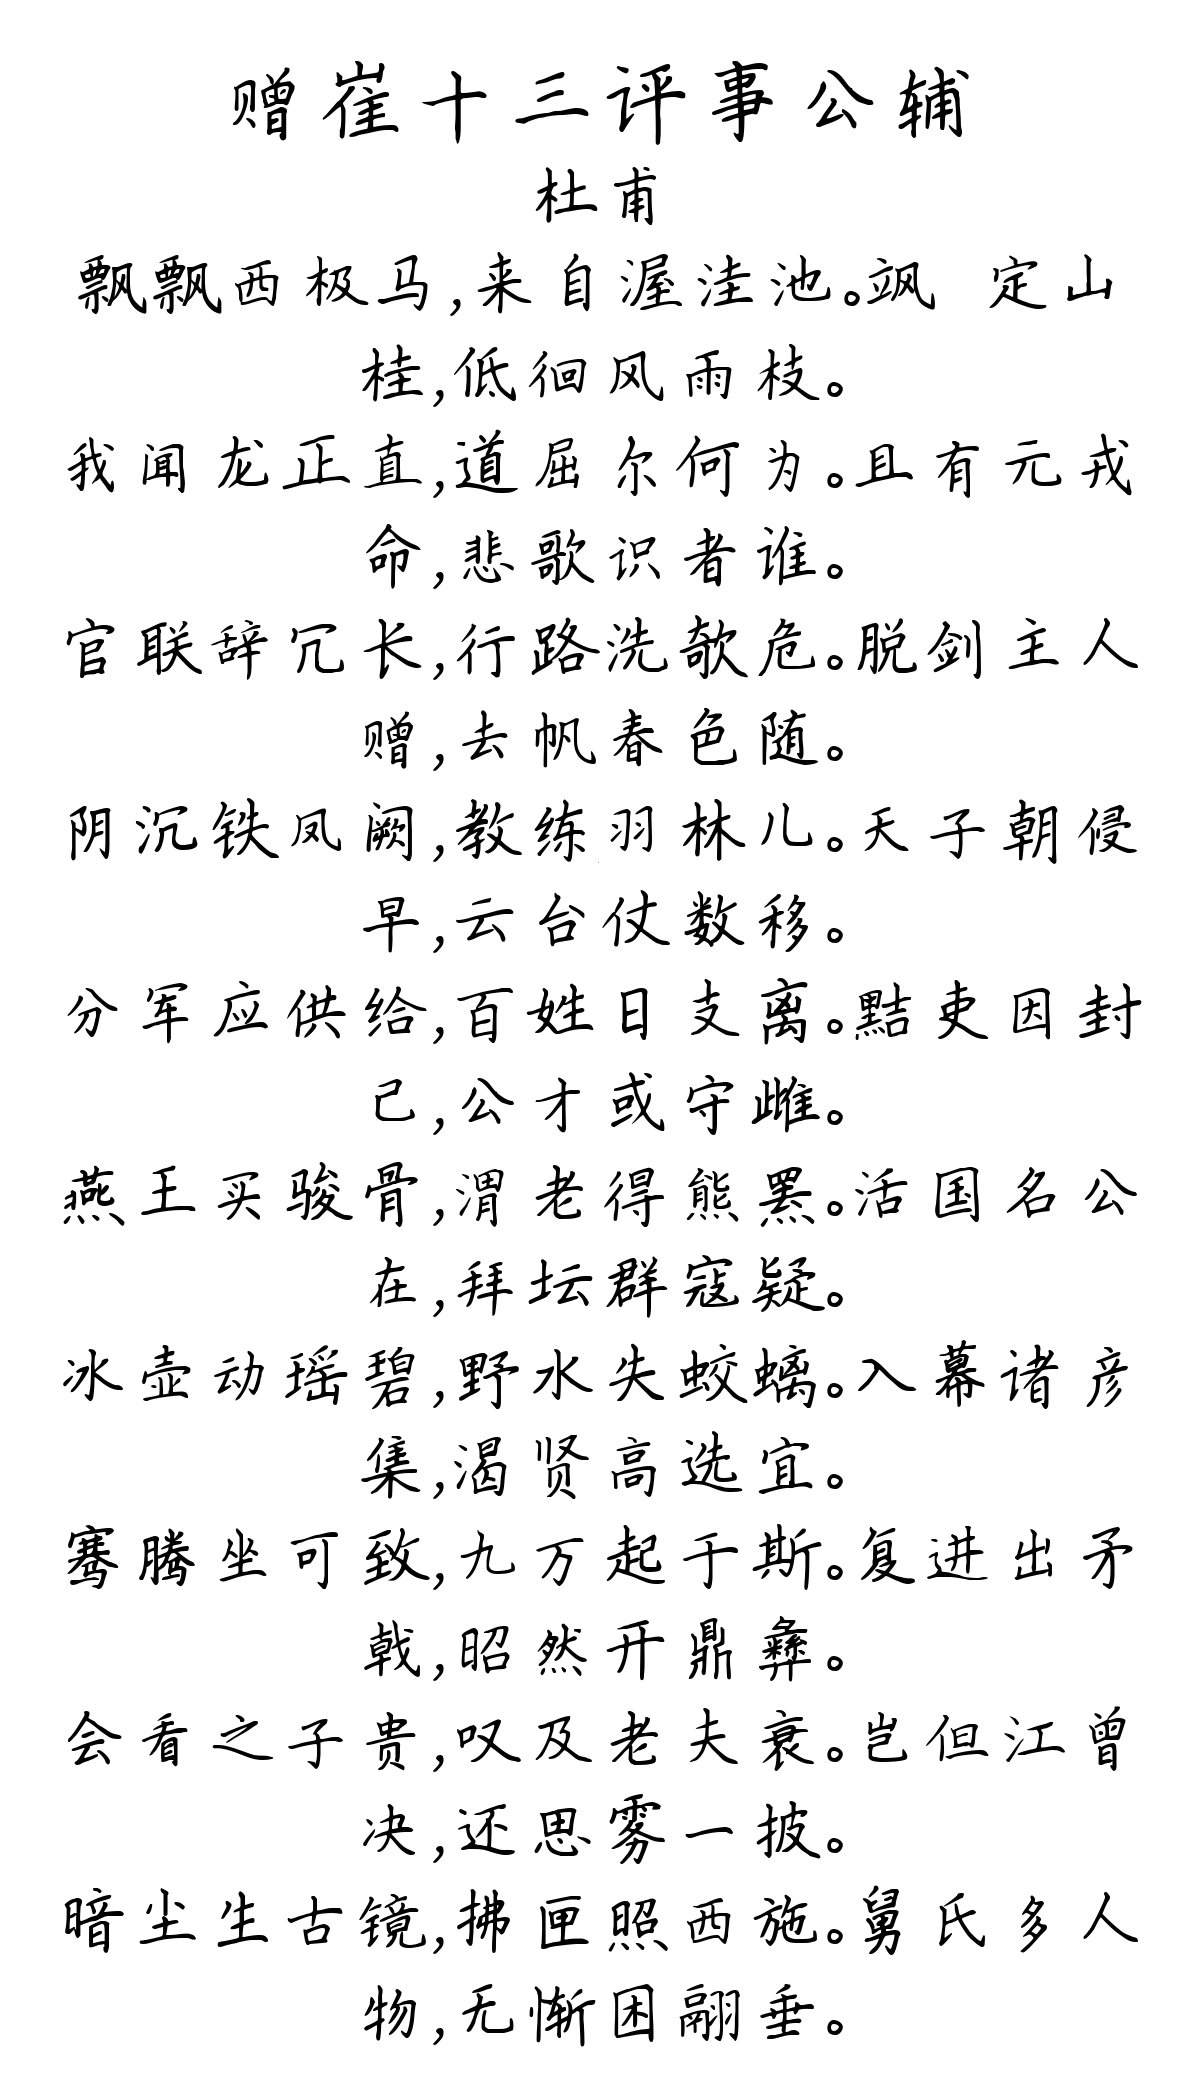 赠崔十三评事公辅
杜甫
飘飘西极马,来自渥洼池。飒 定山
桂,低徊风雨枝。
我闻龙正直,道屈尔何为。且有元戎
命,悲歌识者谁。
官联辞冗长,行路洗欹危。脱剑主人
赠,去帆春色随。
阴沉铁凤阙,教练羽林儿。天子朝侵
早,云台仗数移。
分军应供给,百姓日支离。黠吏因封
己,公才或守雌。
燕王买骏骨,渭老得熊罴。活国名公
在,拜坛群寇疑。
冰壶动瑶碧,野水失蛟螭。入幕诸彦
集,渴贤高选宜。
骞腾坐可致,九万起于斯。复进出矛
戟,昭然开鼎彝。
会看之子贵,叹及老夫衰。岂但江曾
决,还思雾一披。
暗尘生古镜,拂匣照西施。舅氏多人
物,无惭困翮垂。